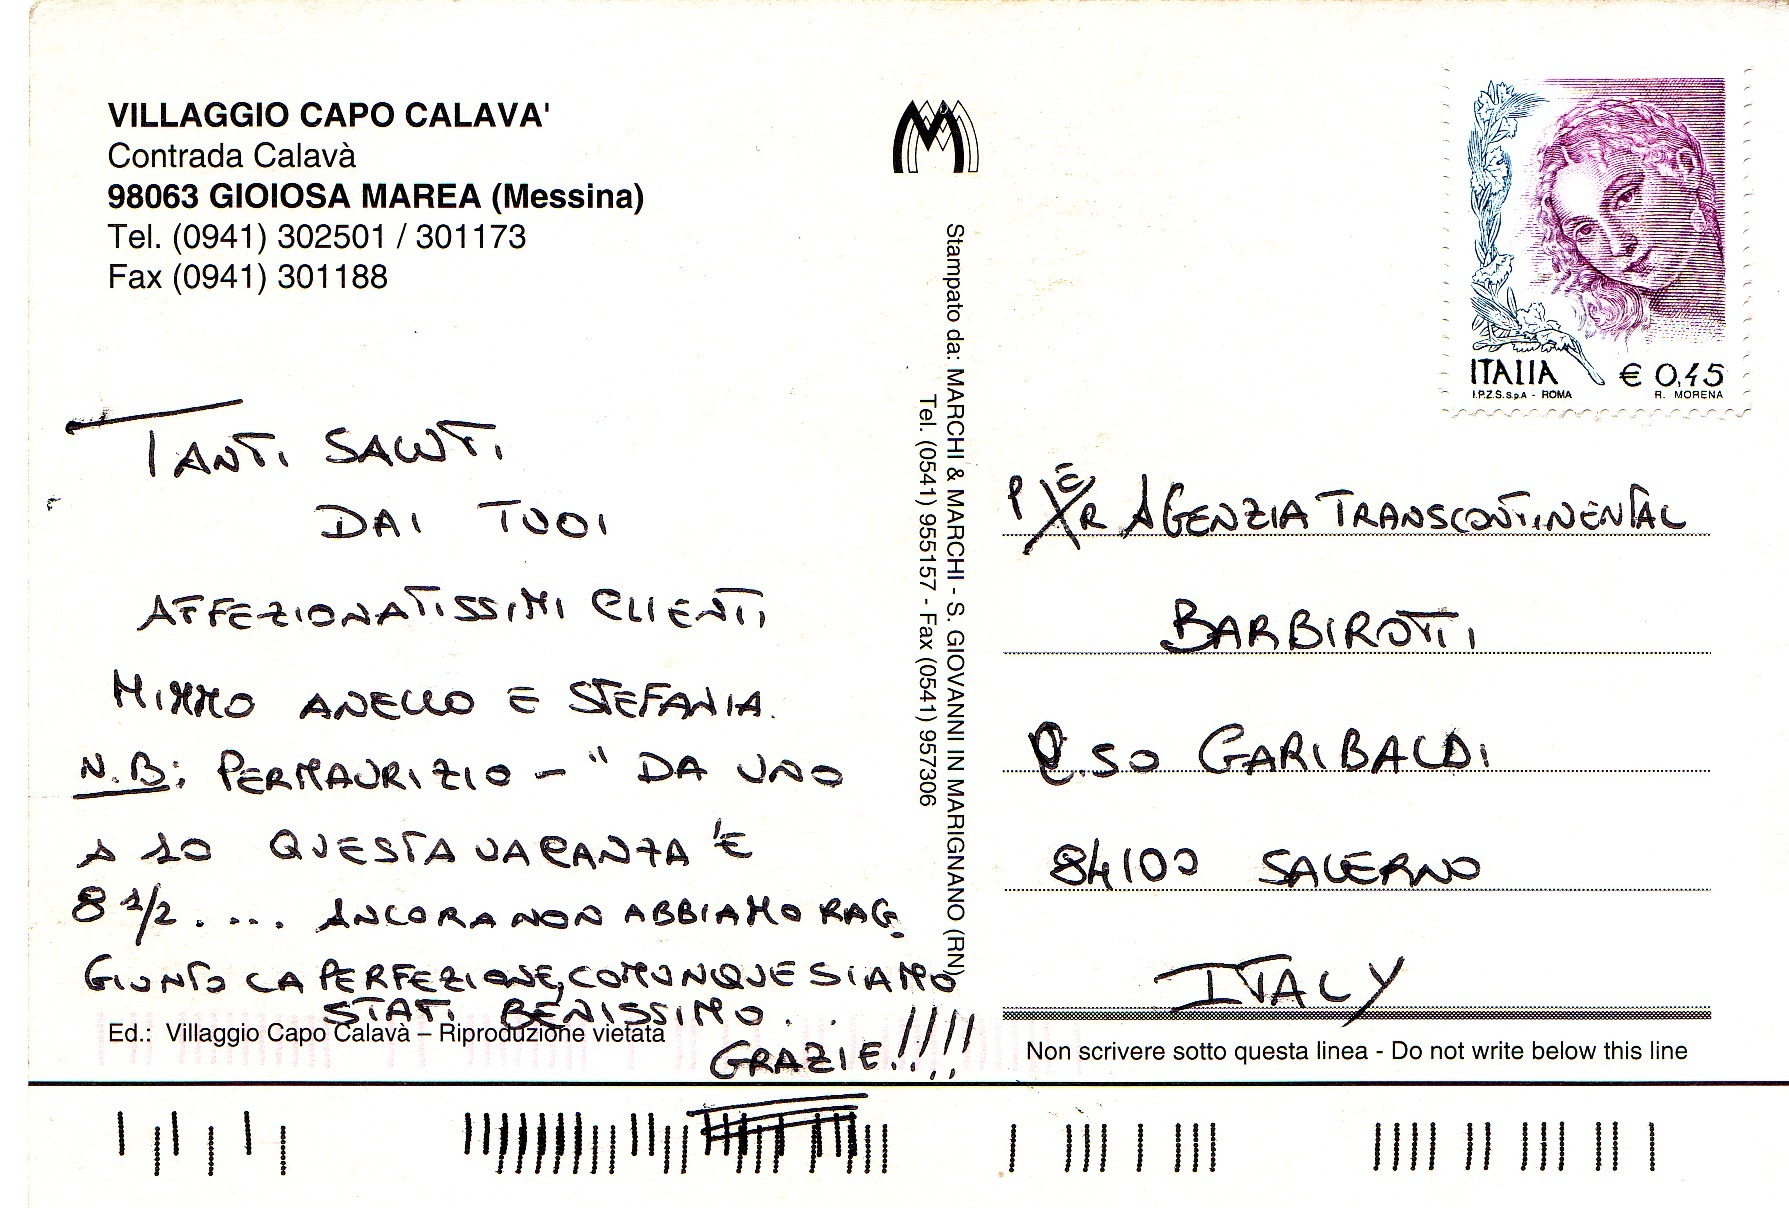 VILLAGGIO CAPO CALAVA'
Contrada Calavà
98063 GIOIOSA MAREA (Messina)
Tel. (0941) 302501 / 301173
Fax (0941) 301188
TANTI SALUTI
DAI TUOI
AFFEZIONATISSIMI CLIENTI
MIMMO ANELLO E STEFANIA.
N.B: PER MAURIZIO - " DA UNO
A 10 QUESTA VACANZA 'E
8 1/2 . ... ANCORA NON ABBIAMO RAG.
GIUNTO LA PERFEZIONE, COMUNQUE SIAMO
STATI BENISSIMO . .
GRAZIE!!!!
Ed.: Villaggio Capo Calavà – Riproduzione vietata
Stampato da: MARCHI & MARCHI - S. GIOVANNI IN MARIGNANO (RN)
Tel. (0541) 955157 - Fax (0541) 957306
ITALIA € 0,45
I.P.Z.S. S.p.A. - ROMA R. MORENA
PER AGENZIA TRANSCONTINENTAL
BARBIROTTI
C.SO GARIBALDI
84100 SALERNO
ITALY
Non scrivere sotto questa linea - Do not write below this line